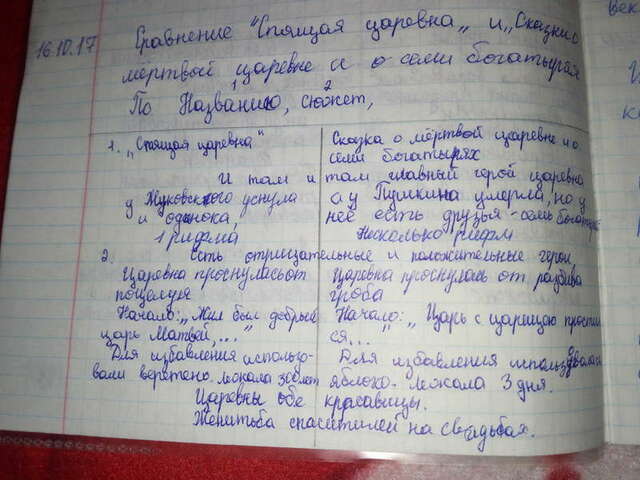 16.10.17
Сравнение "Спящая царевна" и "Сказки о
мёртвой царевне и о семи богатырях
По Названию, сюжет,
1 2
1. "Спящая царевна"
Сказка о мёртвой царевне и о
семи богатырях
И там и там главный герой царевна
у Жуковского уснула
и одинока,
1 рифма
а у Пушкина умерла, но у
неё есть друзья - семь богатырей
Несколько рифм
2. Есть отрицательные и положительные герои,
Царевна проснулась от
поцелуя
Начало: "Жил был добрый
царь Матвей,..."
Для избавления использо-
вали веретено. Лежала 300 лет
Царевна проснулась от разбива
гроба
Начало: "Царь с царицею простил
ся..."
Для избавления использовалась
яблоко. Лежала 3 дня.
Царевны обе красавицы.
Женитьба спасителей на свадьбах.
век